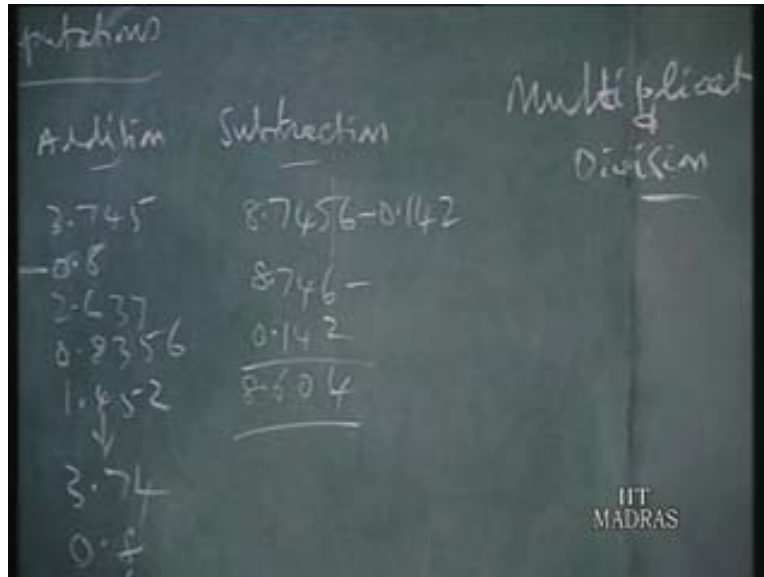 putations
Addition
3.745
0.8
2.637
0.8356
1.452
3.74
0.8
Subtraction
8.7456-0.142
8.746-
0.142
8.604
Multiplicat
Division
IIT
MADRAS